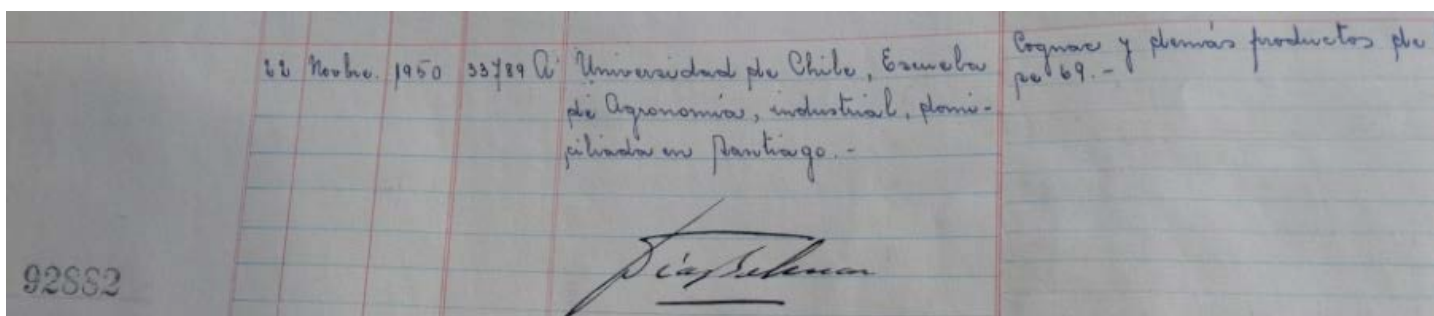 22 Novbre. 1950 33789 A Universidad de Chile, Escuela
de Agronomía, industrial, domi-
ciliada en Santiago.-
Cognac y demás productos de
69.-
92882